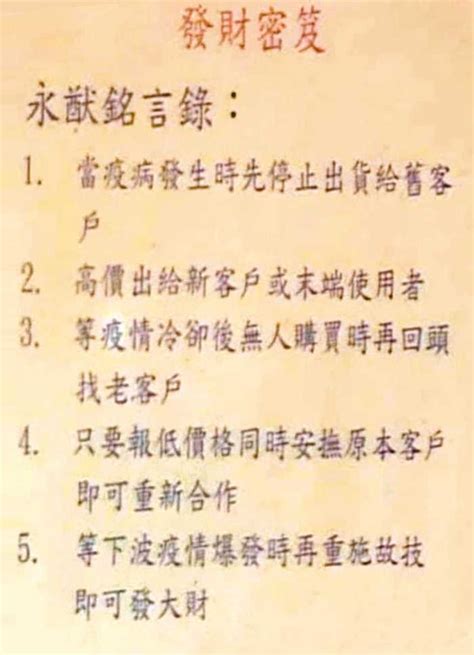 發財密笈
永猷銘言錄：
1. 當疫病發生時先停止出貨給舊客
戶
2. 高價出給新客戶或末端使用者
3. 等疫情冷卻後無人購買時再回頭
找老客戶
4. 只要報低價格同時安撫原本客戶
即可重新合作
5. 等下波疫情爆發時再重施故技
即可發大財